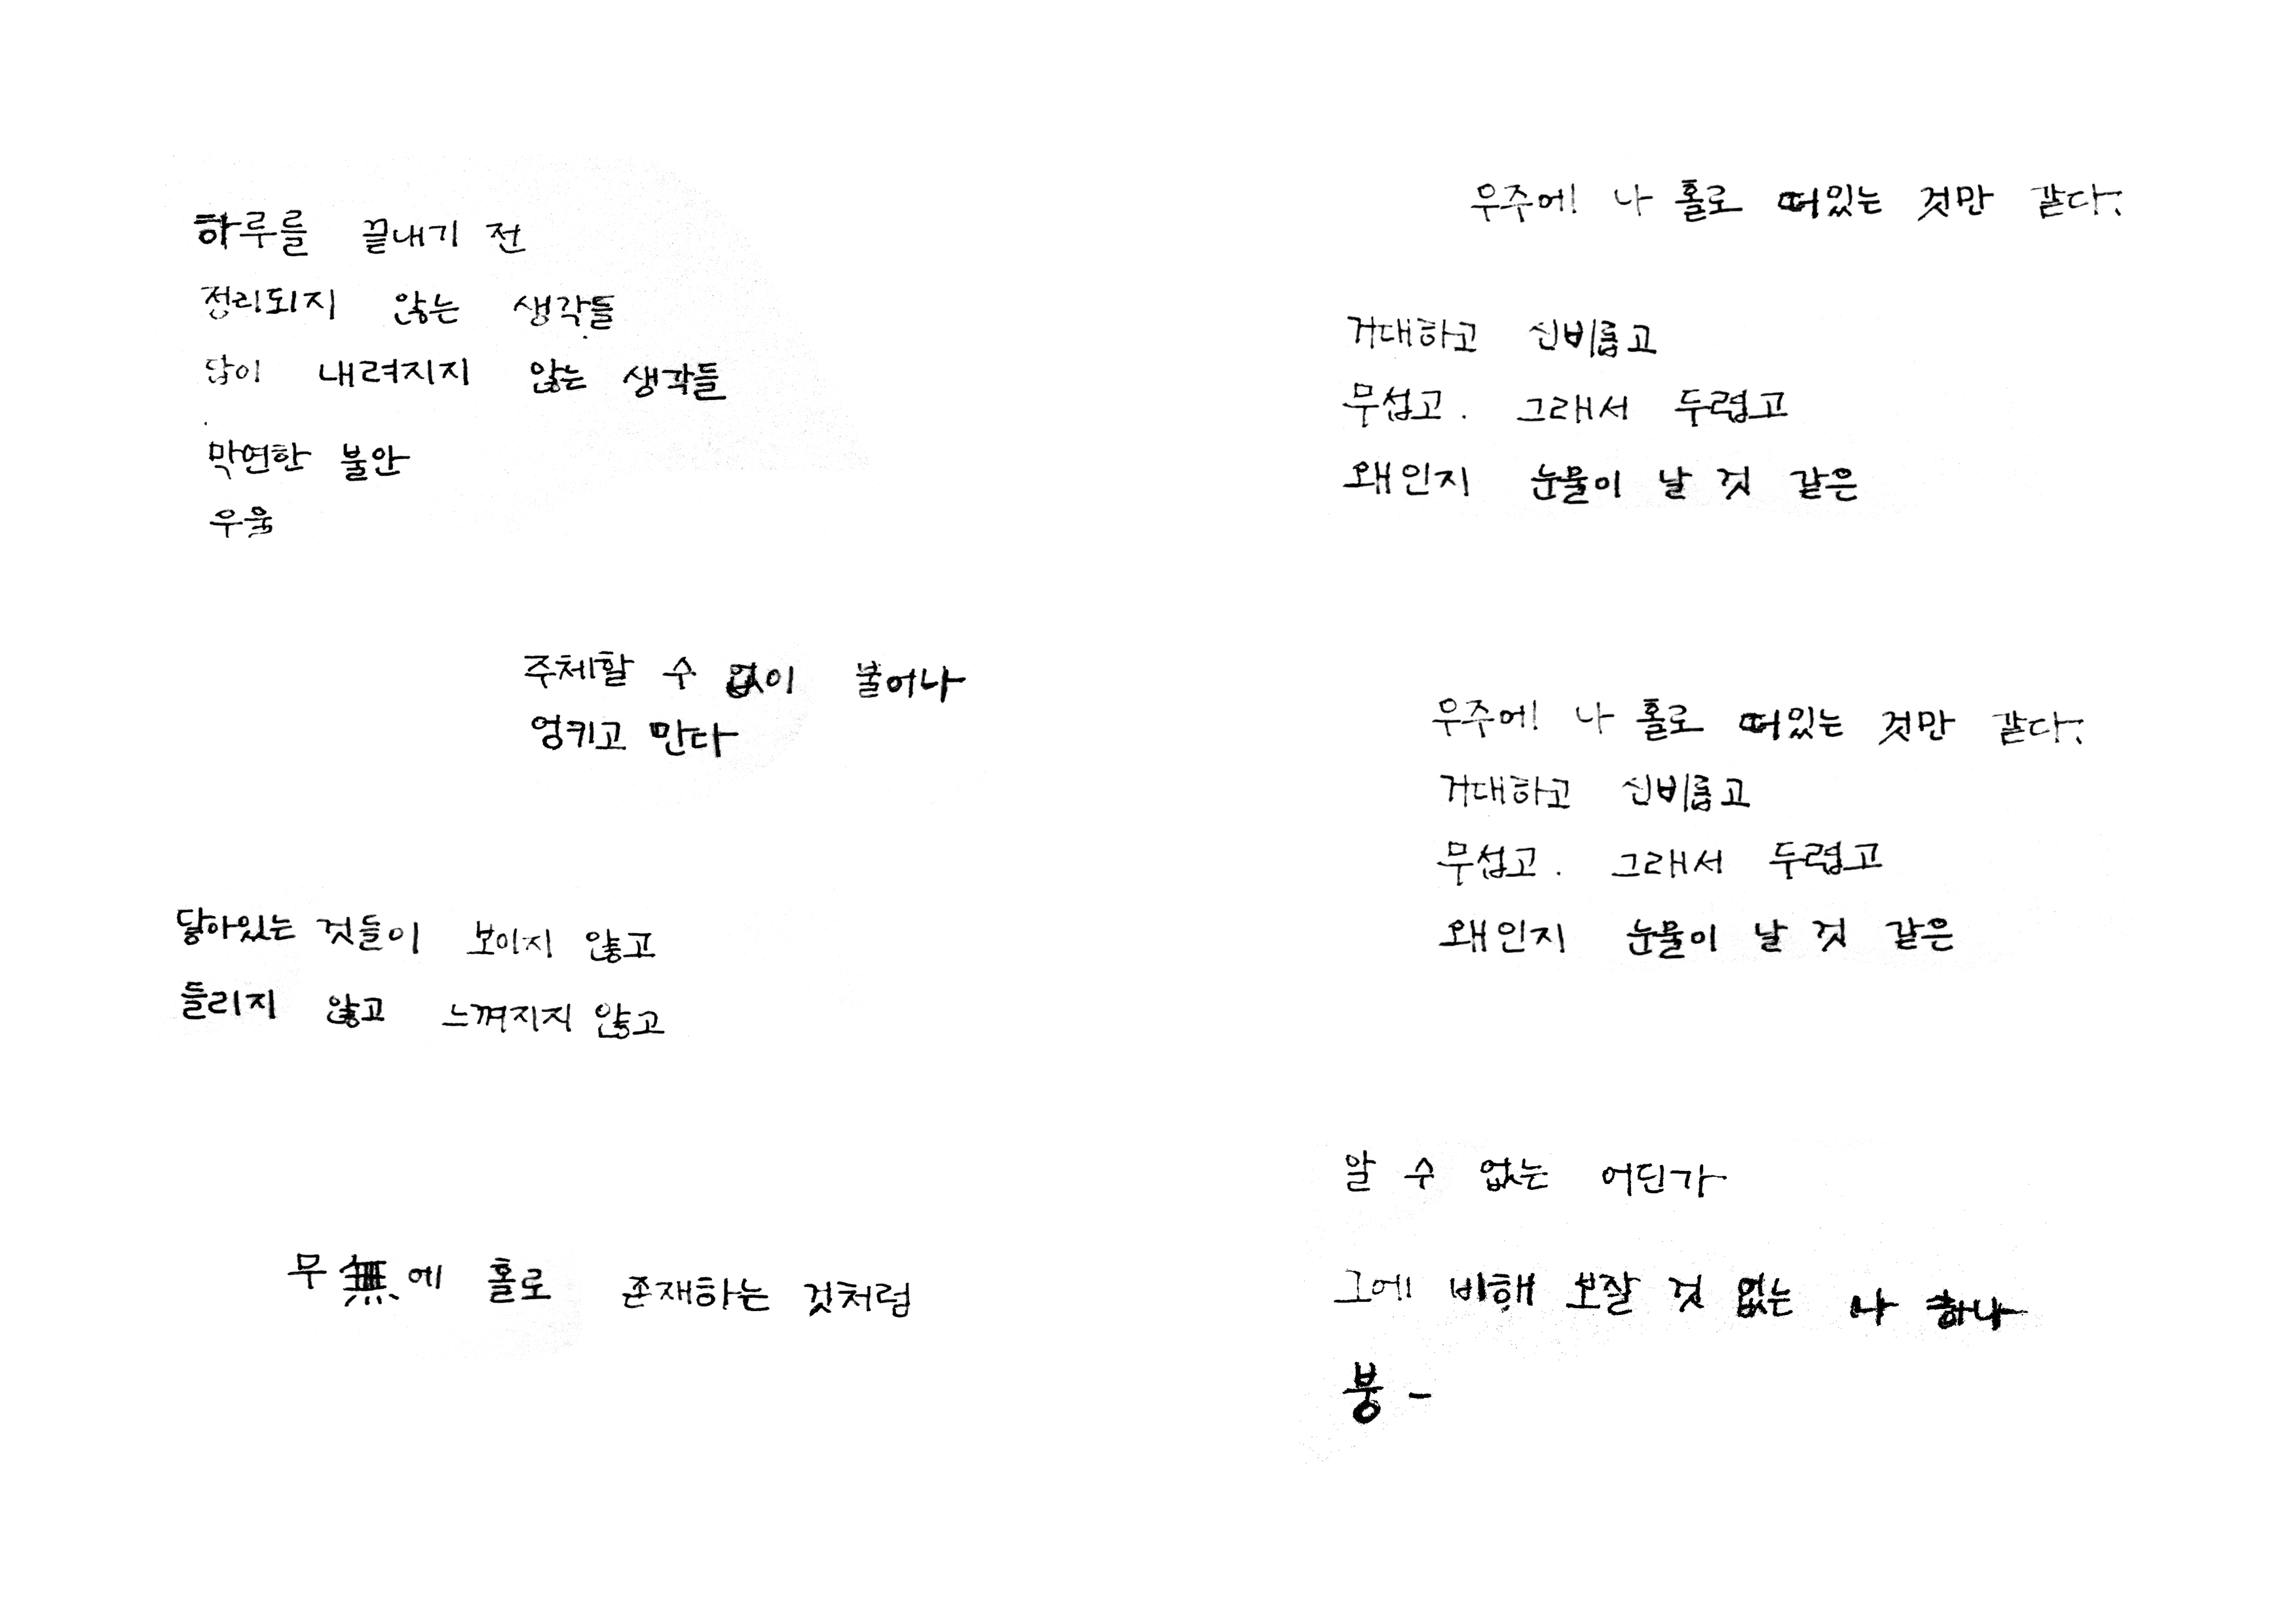 하루를 끝내기 전
정리되지 않는 생각들
답이 내려지지 않는 생각들
막연한 불안
우울
주체할 수 없이 불어나
엉키고 만다
닿아있는 것들이 보이지 않고
들리지 않고 느껴지지 않고
무無에 홀로 존재하는 것처럼
우주에! 나 홀로 떠있는 것만 같다.
거대하고 신비롭고
무섭고. 그래서 두렵고
왜인지 눈물이 날 것 같은
우주에! 나 홀로 떠있는 것만 같다.
거대하고 신비롭고
무섭고. 그래서 두렵고
왜인지 눈물이 날 것 같은
알 수 없는 어딘가
그에 비해 보잘 것 없는 나 하나
붕 -